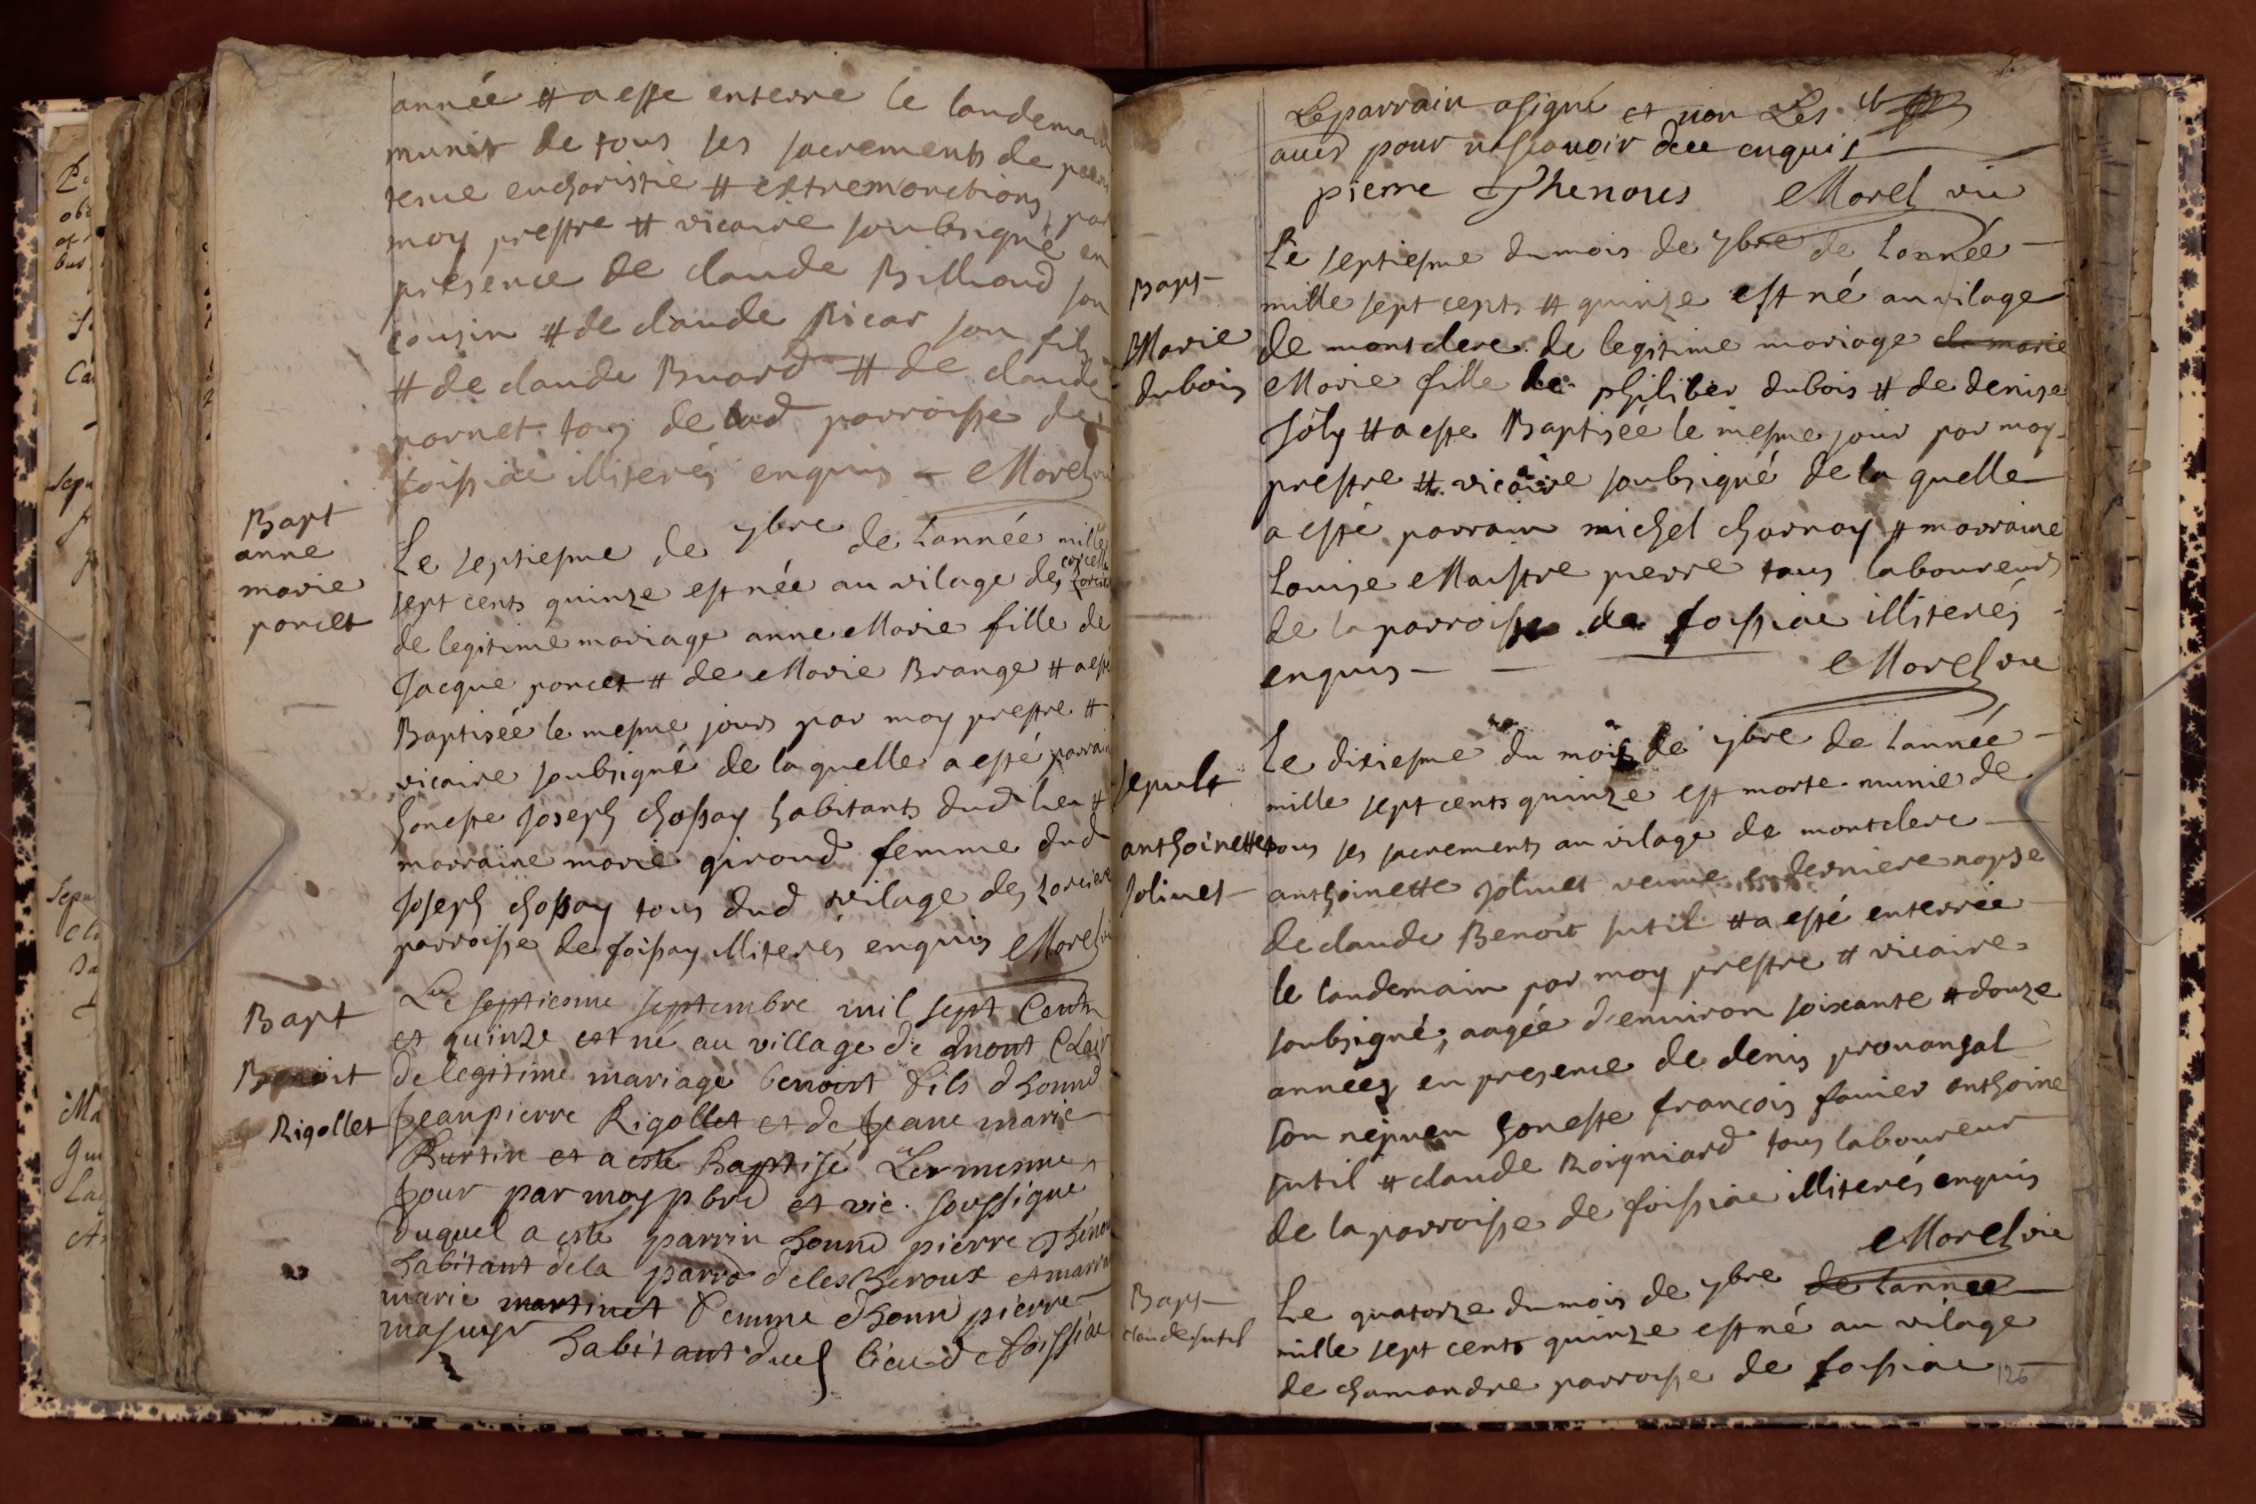 année et a este enterré le landemain
munit de tous ses sacrements de peni
tence eucharistie et extremonctions par
moy prestre et vicaire soubsigné en
presence de claude Billioud son
cousin et de claude Picar son fils
et de claude Buard et de claude
pornet tous de lad parroisse de
foissiac illiterés enquis Morel vic
Bapt
anne
marie
poncet
Le septiesme de 7bre de Lannée mille
sept cents quinze est née au vilage des
de legitime mariage anne Marie fille de
Jacque poncet et de Marie Brange et a esté
Baptisée le mesme jours par moy prestre et
vicaire soubsigné de laquelle a esté parrain
honeste Joseph chossay habitants dud lieu et
marraine marie giroud femme dud
Joseph chossay tous dud vilage des
parroisse de foissay illiterés enquis Morel vi
Bapt
Benoit
Rigollet
Le septiesme septembre mil sept Cents
et quinze est né au village de mont Clair
de legitime mariage benoist fils d honnd
Jeanpierre Rigollet et de Jeane marie
Burtin et a esté Baptisé Le mesme
Jour par moy pbre et vic. soussigne
duquel a esté parrin honnd pierre Théno
habitant dela parro deles heroux et marra
marie martinet femme d honn pierre
masuyr habitant dud lieu de foissiac
Le parrain a signé et non Les
aues pour ne scavoir de ce enquis
pierre Thenous Morel vic
Bapt
Marie
dubois
Le septiesme du mois de 7bre de Lannée
mille sept cents et quinze est né au vilage
de montclere de legitime mariage de marie
Marie fille de philiber dubois et de denise
Joly et a este Baptisée le mesme jour par moy
prestre et vicaire soubsigné de la quelle
a esté parrain michel charnay et marraine
Louise Maistre pierre tous laboureurs
de la parroisse de foissiac illiterés
enquis Morel vic
sepult
anthoinette
Jolivet
Le dixiesme du mois de 7bre de Lannée
mille sept cents quinze est morte munie de
tous ses sacrements au vilage de montclere
anthoinette Jolivet veuve en derniere nopse
de claude Benoit sutil et a esté enterrée
le landemain par moy prestre et vicaire
soubsigné, aagée d'environ soixante et douze
années en presence de denis provansal
son nepveu honeste françois favier anthoine
sutil et claude Roigniard tous laboureur
de la parroisse de foissiac illiterés enquis
Morel vic
Bapt
claude sutil
Le quatorze du mois de 7bre de Lannée
mille sept cents quinze est né au vilage
de chamandre parroisse de foissiac
126